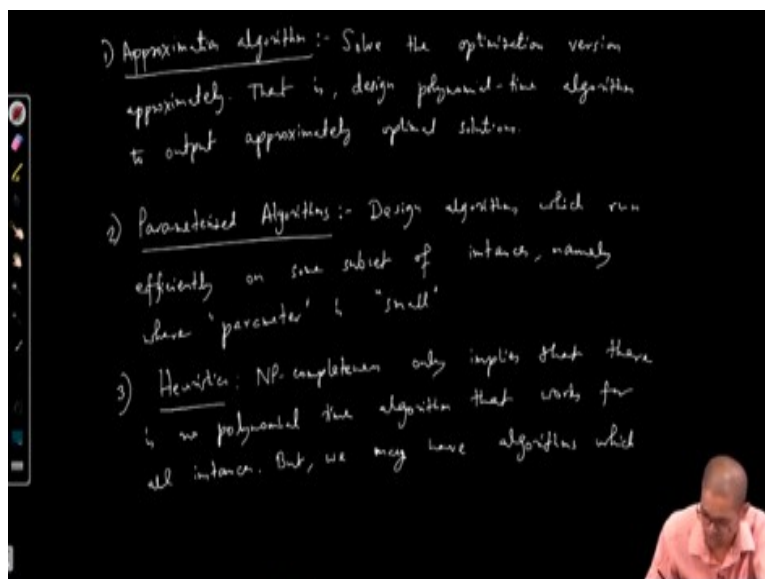 1) Approximation algorithm :- Solve the optimization version
approximately. That is, design polynomial-time algorithm
to output approximately optimal solutions.
2) Parameterized Algorithms :- Design algorithms which run
efficiently on some subset of instances, namely
where "parameter" is "small"
3) Heuristics : NP-completeness only implies that there
is no polynomial time algorithm that works for
all instances. But, we may have algorithms which